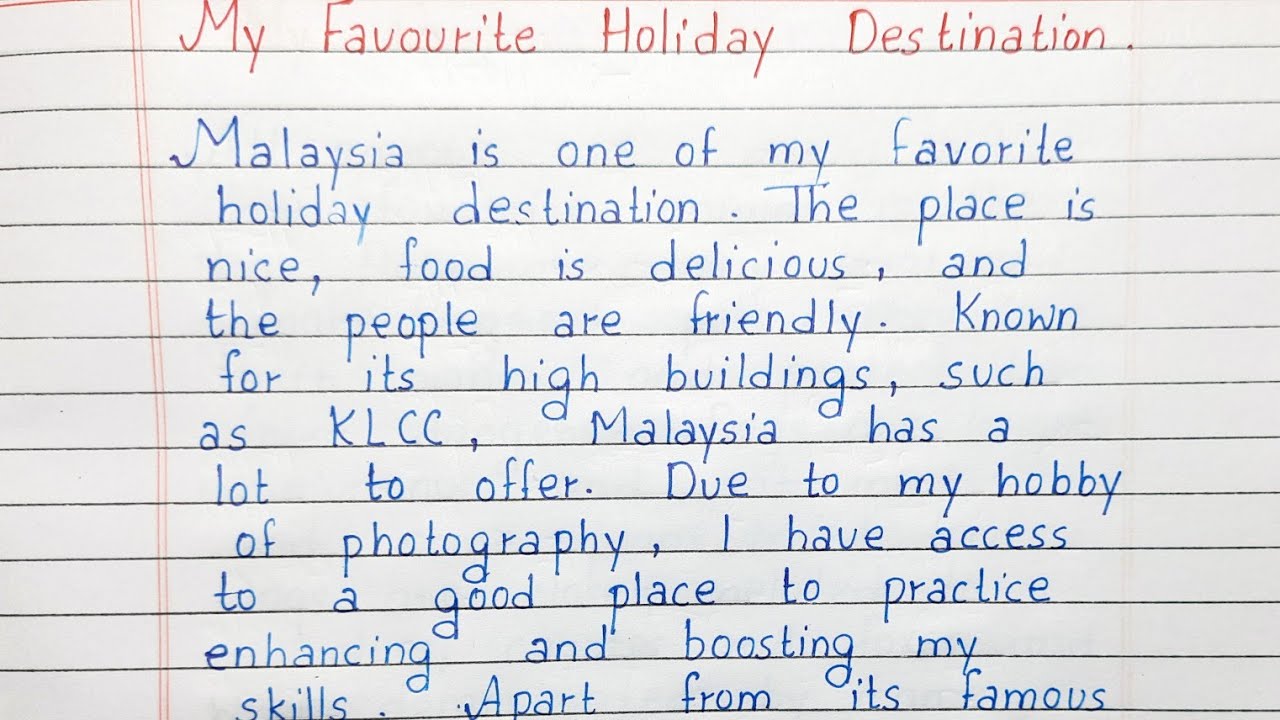 My Favourite Holiday Destination.
Malaysia is one of my favorite
holiday destination. The place is
nice, food is delicious, and
the people are friendly. Known
for its high buildings, such
as KLCC, Malaysia has a
lot to offer. Due to my hobby
of photography, I have access
to a good place to practice
enhancing and boosting my
skills. Apart from its famous